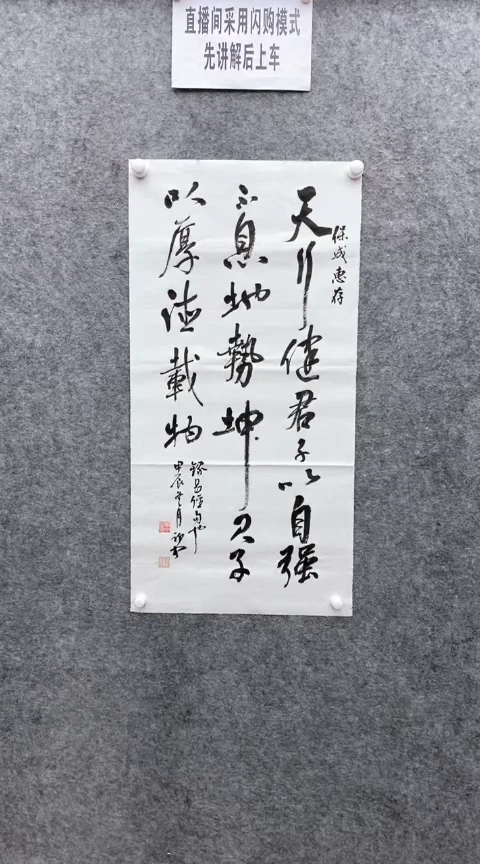 直播间采用闪购模式
先讲解后上车
保成惠存
天行健君子以自强
不息地势坤君子
以厚德载物
录易经句
甲辰
月